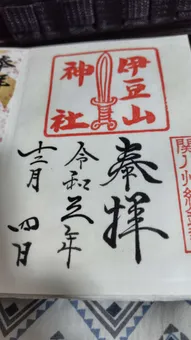 伊豆山
神社
奉拝
令和三年
十二月四日
関八州総鎮